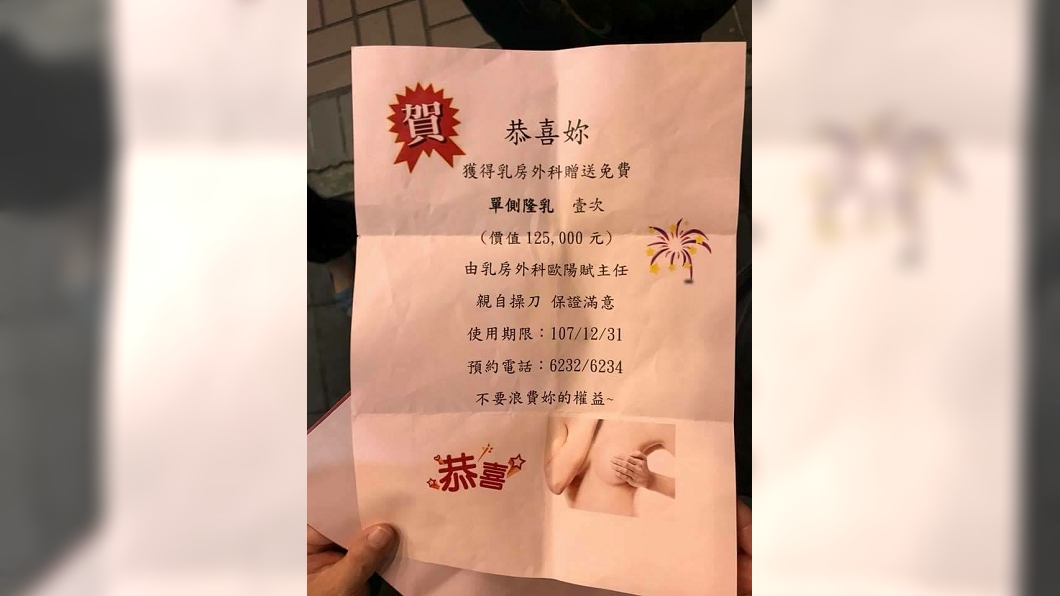 賀
恭喜妳
獲得乳房外科贈送免費
單側隆乳 壹次
(價值 125,000 元)
由乳房外科歐陽賦主任
親自操刀 保證滿意
使用期限：107/12/31
預約電話：6232/6234
不要浪費妳的權益~
恭喜